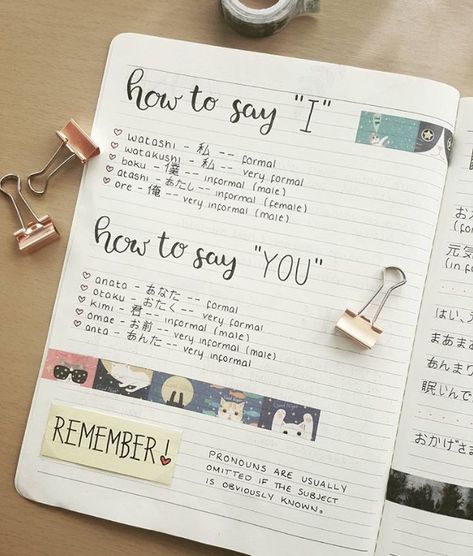 how to say "I"
watashi - 私 -- formal
watakushi - 私 -- very formal
boku - 僕 -- informal (male)
atashi - あたし -- informal (female)
ore - 俺 -- very informal (male)
how to say "YOU"
anata - あなた -- formal
otaku - おたく -- very formal
kimi - 君 -- informal (male)
omae - お前 -- informal (male)
anta - あんた -- very informal
REMEMBER!
PRONOUNS ARE USUALLY
OMITTED IF THE SUBJECT
IS OBVIOUSLY KNOWN.
元気
(in f
はい、元
まあまあ
あんまり
眠いんで
おかげさま